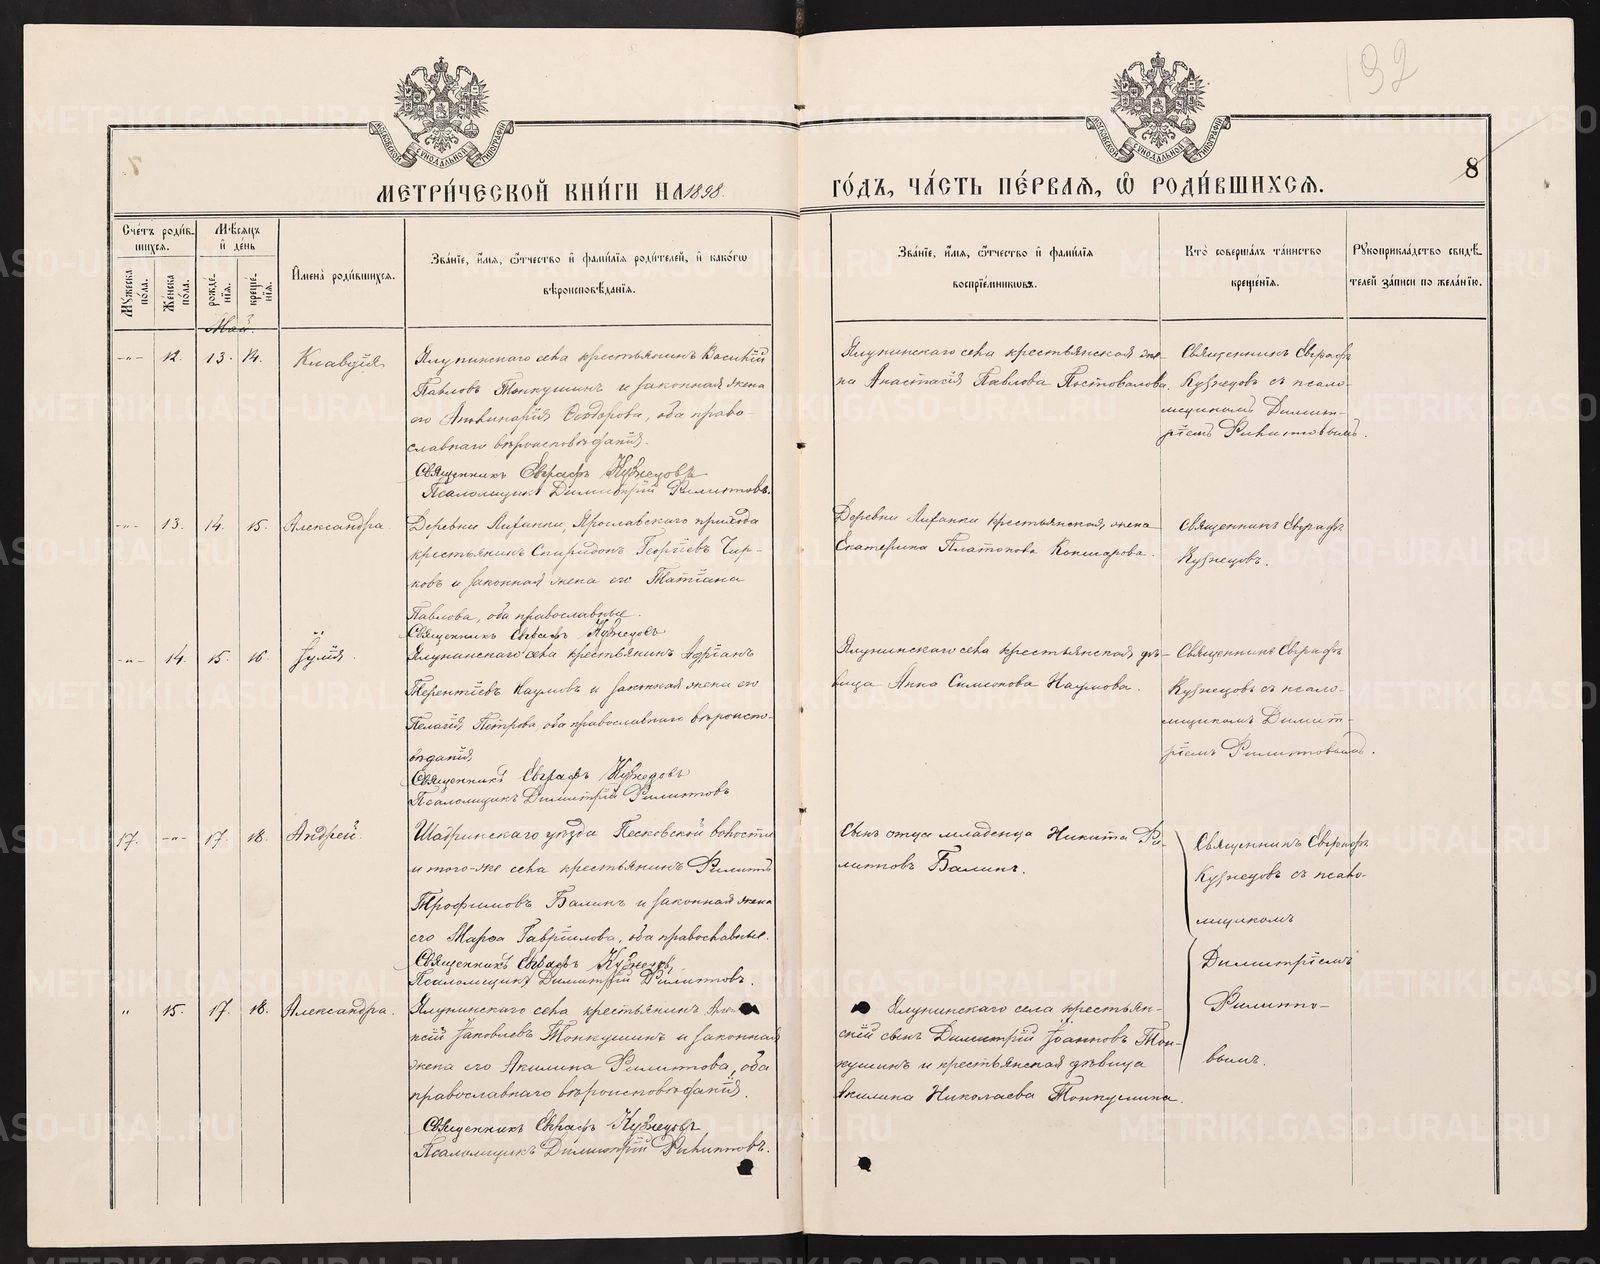 192
МОСКОВСКОЙ СѴНОДАЛЬНОЙ ТИПОГРАФІИ
МОСКОВСКОЙ СѴНОДАЛЬНОЙ ТИПОГРАФІИ
8
МЕТРИ́ЧЕСКОЙ КНИ́ГИ НА 1898.
ГО́ДЪ, ЧА́СТЬ ПЕ́РВАЯ, Ѽ РОДИ́ВШИХСЯ.
Сче́тъ роди́в-
шихся.
Му́жеска
по́ла.
Же́нска
по́ла.
Мѣ́сяцъ
и҆ де́нь
рожде́-
нїя.
креще́-
нїя.
И҆мена̀ роди́вшихся.
Зва́нїе, и҆́мя, ѻ҆́тчество и҆ фами́лїя роди́телей, и҆ како́гѡ
вѣроисповѣ́данїя.
Зва́нїе, и҆́мя, ѻ҆́тчество и҆ фами́лїя
воспрїе́мникѡвъ.
Кто̀ соверша́лъ та́инство
креще́нїя.
Рꙋкоприкла́дство свидѣ́-
телей за́писи по жела́нїю.
Май.
-"- 12. 13. 14. Клавдія
Ялунинскаго села крестьянинъ Василій
Павловъ Тонкушинъ и законная жена
его Аполинарія Ѳеодорова, оба право-
славнаго вѣроисповѣданія.
Священникъ Евграфъ Кузнецовъ
Псаломщикъ Димитрій Филитовъ.
Ялунинскаго села крестьянская же-
на Анастасія Павлова Постовалова.
Священникъ Евграфъ
Кузнецовъ съ псало-
мщикомъ Димит-
ріемъ Филитовымъ.
-"- 13. 14. 15. Александра.
Деревни Ярославскаго прихода
крестьянинъ Спиридонъ Георгіевъ Чир-
ковъ и законная жена его Татіана
Павлова, оба православные.
Священникъ Евграфъ Кузнецовъ
Деревни крестьянская жена
Екатерина Платонова Кокшарова.
Священникъ Евграфъ
Кузнецовъ.
-"- 14. 15. 16. Іулія.
Ялунинскаго села крестьянинъ Адріанъ
Терентіевъ Наумовъ и законная жена его
Пелагія Петрова, оба православнаго вѣроиспо-
вѣданія
Священникъ Евграфъ Кузнецовъ
Псаломщикъ Димитрій Филитовъ
Ялунинскаго села крестьянская дѣ-
вица Анна Симеонова Наумова.
Священникъ Евграфъ
Кузнецовъ съ псало-
мщикомъ Димит-
ріемъ Филитовымъ.
17. -"- 17. 18. Андрей.
Шадринскаго уѣзда Песковской волости
и того-же села крестьянинъ Филиппъ
Трофимовъ Балинъ и законная жена
его Марѳа Гавріилова, оба православные.
Священникъ Евграфъ Кузнецовъ
Псаломщикъ Димитрій Филитовъ.
Сынъ отца младенца Никита Фи-
липповъ Балинъ.
Священникъ Евграфъ
Кузнецовъ съ псало-
мщикомъ
Димитріемъ
Филито-
вымъ.
" 15. 17. 18. Александра.
Ялунинскаго села крестьянинъ
Іаковлевъ Тонкушинъ и законная
жена его Акилина Филиппова, оба
православнаго вѣроисповѣданія.
Священникъ Евграфъ Кузнецовъ
Псаломщикъ Димитрій Филитовъ.
Ялунинскаго села крестьян-
скій сынъ Димитрій Іоанновъ Тон-
кушинъ и крестьянская дѣвица
Акилина Николаева Тонкушина.